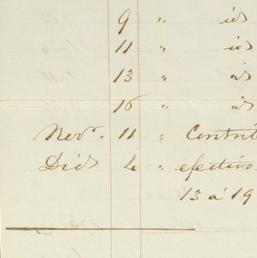 9 " id
11 " id
13 " id
16 " id
Nov.^e 11 " Contri
Dic^e 4 " efectivo
13 a 19